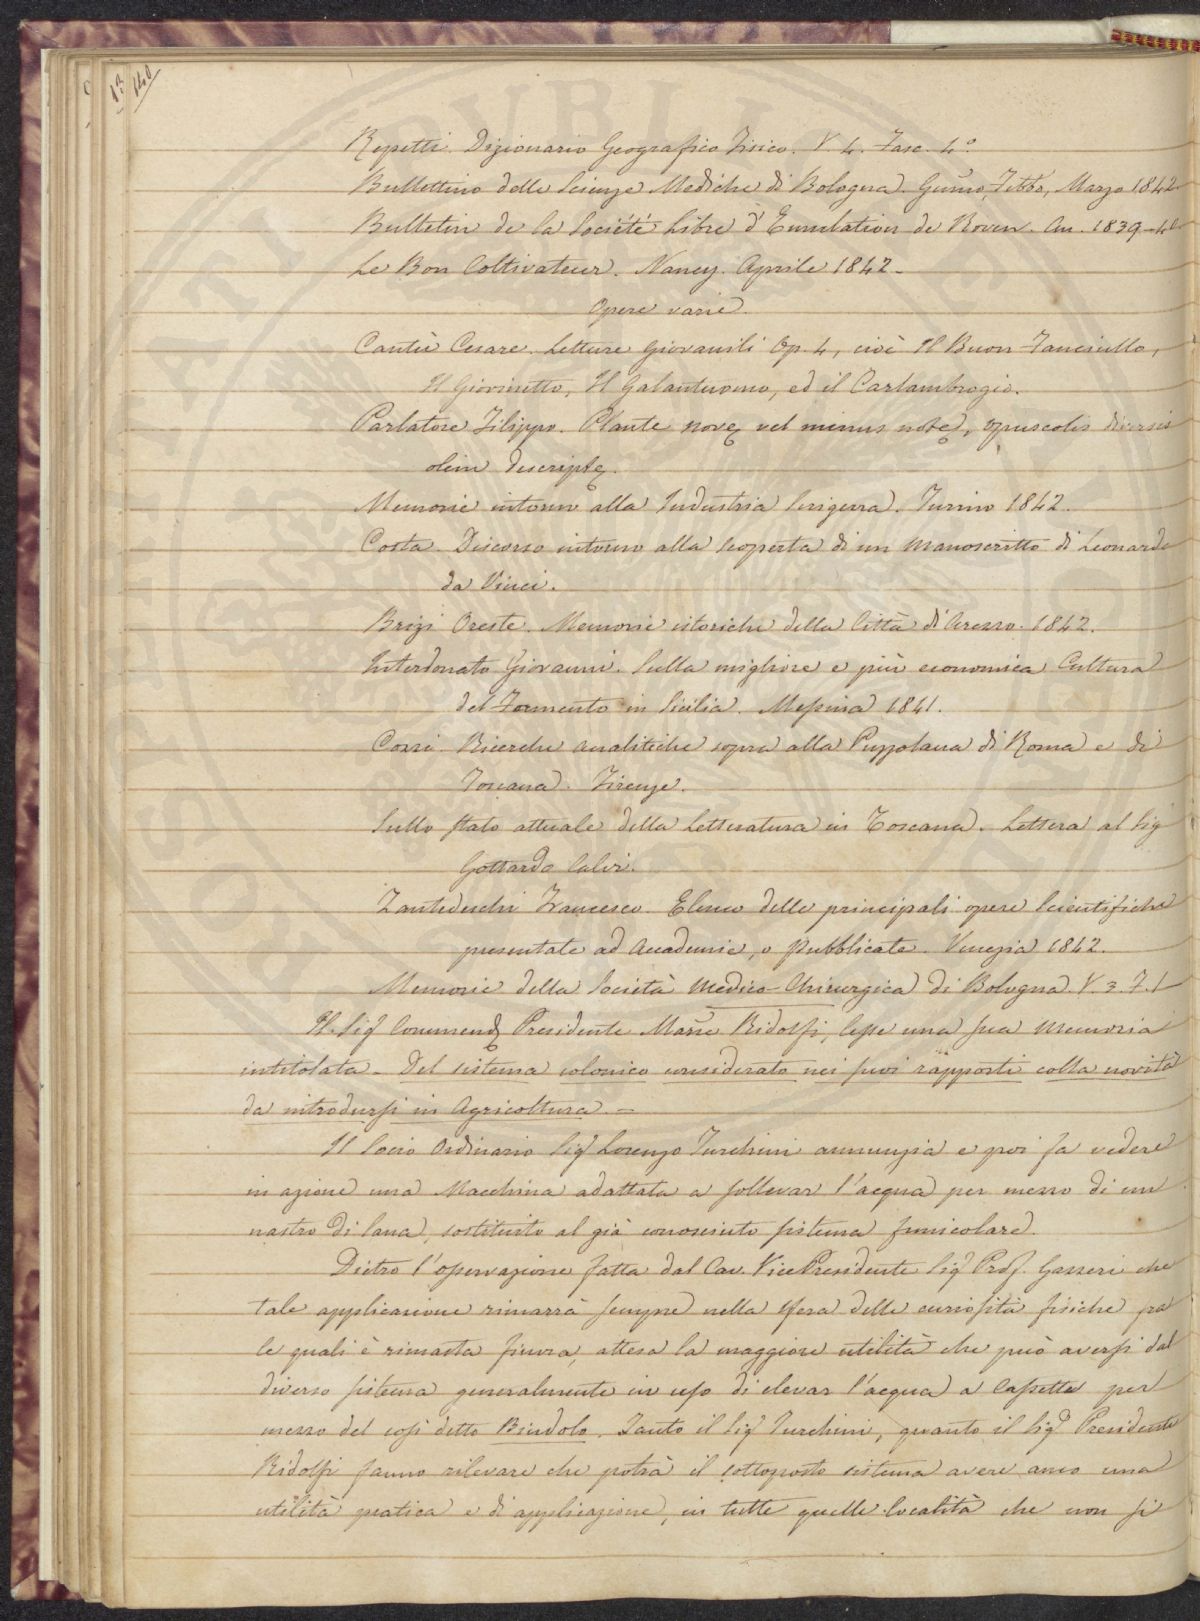 140
13
Repetti. Dizionario Geografico Fisico. V. 4. Fasc. 4.º
Bullettino delle Scienze Mediche di Bologna. Genno, Febbo, Marzo 1842
Bulletin de la Société Libre d'Emulation de Rouen. An. 1839-40
Le Bon Coltivateur. Nancy. Aprile 1842.
Opere varie.
Cantù Cesare. Letture Giovanili Op. 4, cioè Il Buon Fanciullo,
Il Giovinetto, Il Galantuomo, ed il Carlambrogio.
Parlatore Filippo. Plante novę vel minus notę, opuscolis diversis
olim descriptę.
Memorie intorno alla Industria Serigena. Torino 1842.
Costa. Discorso intorno alla scoperta di un Manoscritto di Leonardo
da Vinci.
Brizi Oreste. Memorie istoriche della Città di Arezzo. 1842.
Interdonato Giovanni. Sulla migliore e più economica Cultura
del Formento in Sicilia. Messina 1841.
Corri. Ricerche analitiche sopra alla Puzzolana di Roma e di
Toscana. Firenze.
Sullo stato attuale della Letteratura in Toscana. Lettera al Sig
Gottardo Calvi.
Zantedeschi Francesco. Elenco delle principali opere Scientifiche
presentate ad Accademie, o pubblicate. Venezia 1842.
Memorie della Società Medico-Chirurgica di Bologna. V. 3. F. 1
Il Sig Commend Presidente Marse Ridolfi, lesse una sua Memoria
intitolata - Del sistema colonico considerato nei suoi rapporti colla novità
da introdursi in Agricoltura. -
Il Socio Ordinario Sig Lorenzo Turchini annunzia e poi fa vedere
in azione una Macchina adattata a sollevar l'acqua per mezzo di un
nastro di lana, sostituito al già conosciuto sistema funicolare.
Dietro l'osservazione fatta dal Cav. Vice Presidente Sig Prof. Gazzeri che
tale applicazione rimarrà sempre nella sfera delle curiosità fisiche fra
le quali è rimasta finora, attesa la maggiore utilità che può aversi dal
diverso sistema generalmente in uso di elevar l'acqua a Cassette per
mezzo del così detto Bindolo. Tanto il Sig Turchini, quanto il Sig Presidente
Ridolfi fanno rilevare che potrà il sottoposto sistema avere anco una
utilità pratica e di applicazione, in tutte quelle località che non si